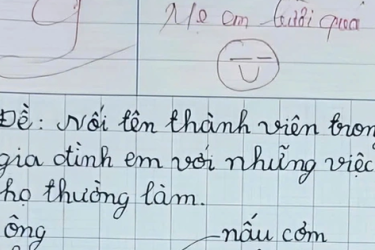 Mẹ em lười quá
Đề: Nối tên thành viên tron
gia đình em với những việc
họ thường làm.
ông
nấu cơm